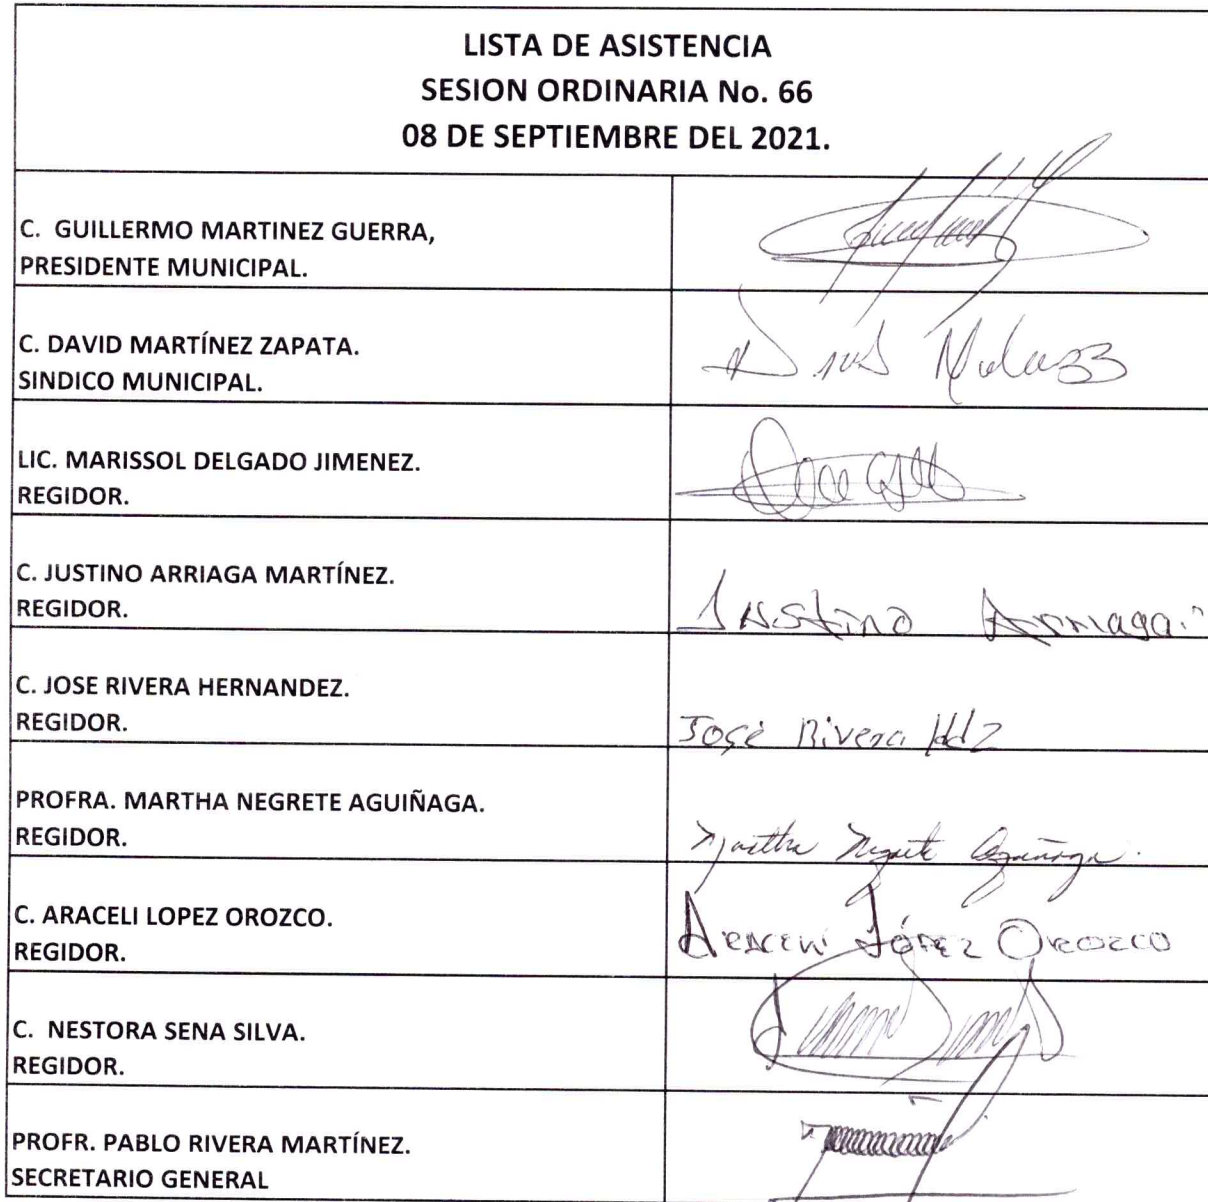 LISTA DE ASISTENCIA
SESION ORDINARIA No. 66
08 DE SEPTIEMBRE DEL 2021.
C. GUILLERMO MARTINEZ GUERRA,
PRESIDENTE MUNICIPAL.
C. DAVID MARTÍNEZ ZAPATA.
SINDICO MUNICIPAL.
David
LIC. MARISSOL DELGADO JIMENEZ.
REGIDOR.
C. JUSTINO ARRIAGA MARTÍNEZ.
REGIDOR.
Justino Arriaga.
C. JOSE RIVERA HERNANDEZ.
REGIDOR.
José Rivera Hdz
PROFRA. MARTHA NEGRETE AGUIÑAGA.
REGIDOR.
Martha Negrete Aguiñaga.
C. ARACELI LOPEZ OROZCO.
REGIDOR.
Araceli López Orozco
C. NESTORA SENA SILVA.
REGIDOR.
PROFR. PABLO RIVERA MARTÍNEZ.
SECRETARIO GENERAL